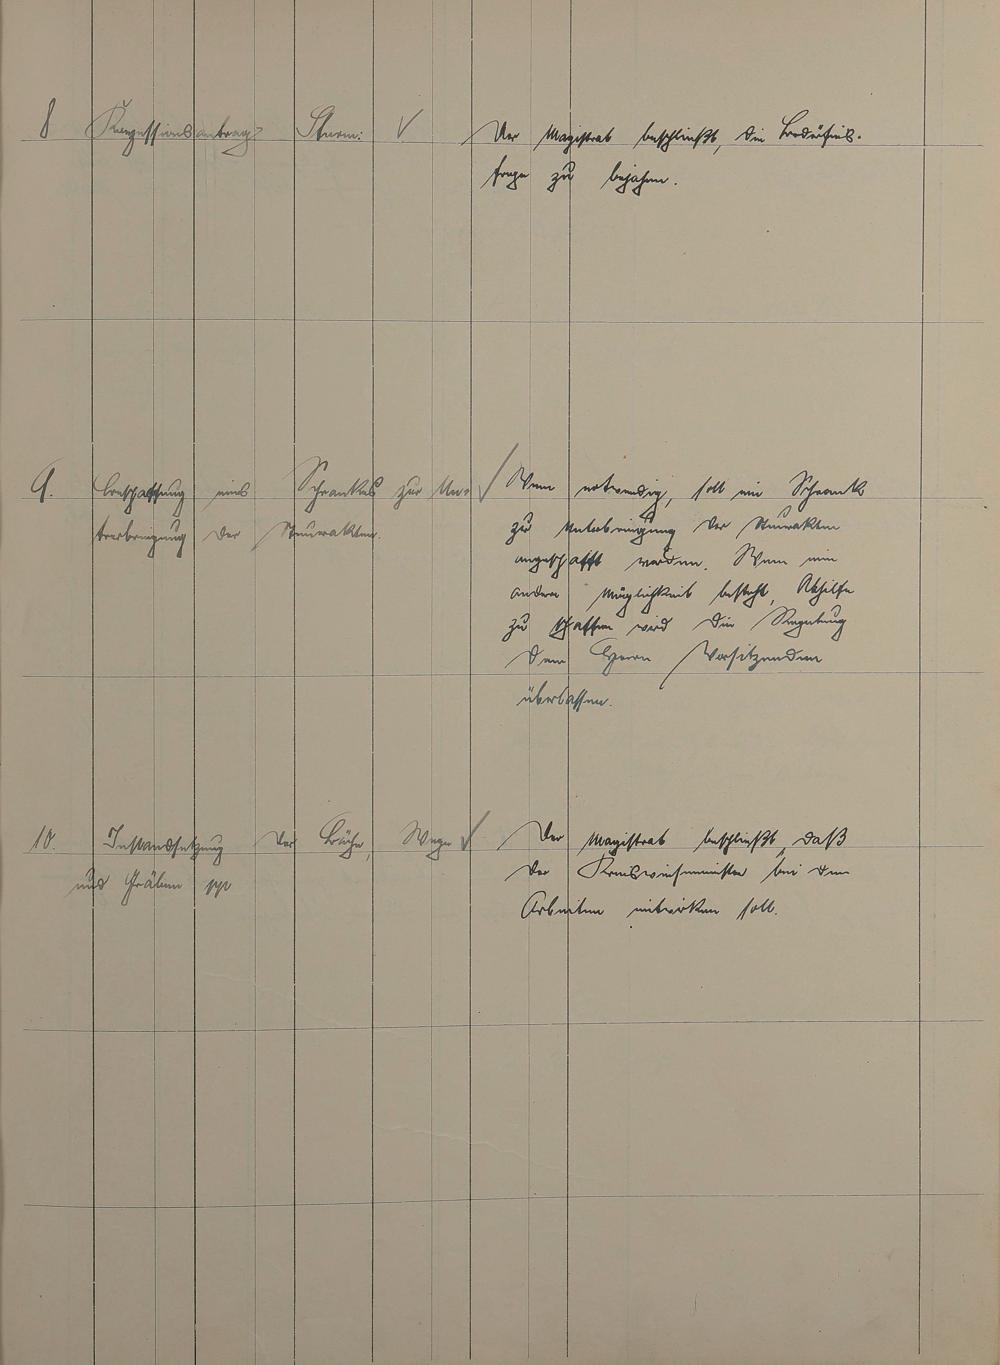 8 Konzessionsantrag Sturm: Der Magistrat beschließt, die Bedürfnis-
frage zu bejahen.
9. Beschaffung eines Schrankes zur Un- Wenn notwendig, soll ein Schrank
terbringung der Steuerakten. zu Unterbringung der Steuerakten
angeschafft werden. Wenn eine
andere Möglichkeit besteht, Abhilfe
zu schaffen wird die Regelung
dem Herrn Vorsitzenden
überlassen.
10. Instandsetzung der Bäche, Wege Der Magistrat beschließt, daß
und Gräben pp der Kreiswiesenmeister bei den
Arbeiten mitwirken soll.